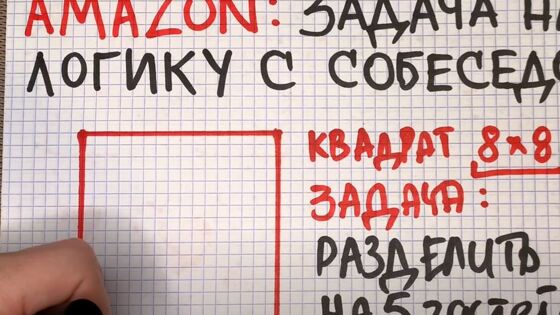 AMAZON: ЗАДАЧА Н
ЛОГИКУ С СОБЕСЕДО
КВАДРАТ 8×8
ЗАДАЧА:
РАЗДЕЛИТЬ
НА 5 частей